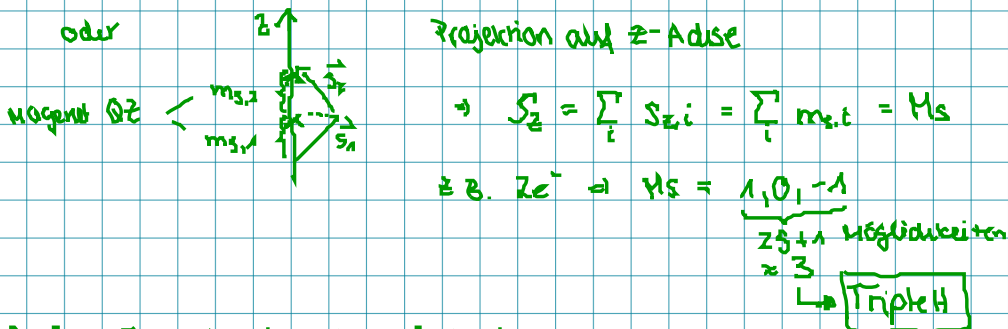 oder
z
Projektion auf z-Achse
magnet QZ < m_{s,2} m_{s,1}
\vec{s}_2
\vec{s}_1
⇒ S_z = \sum_i s_{z,i} = \sum_i m_{s,i} = M_s
z.B. 2e^- ⇒ M_s = 1, 0, -1
2S+1 Möglichkeiten
= 3
↳ Triplett